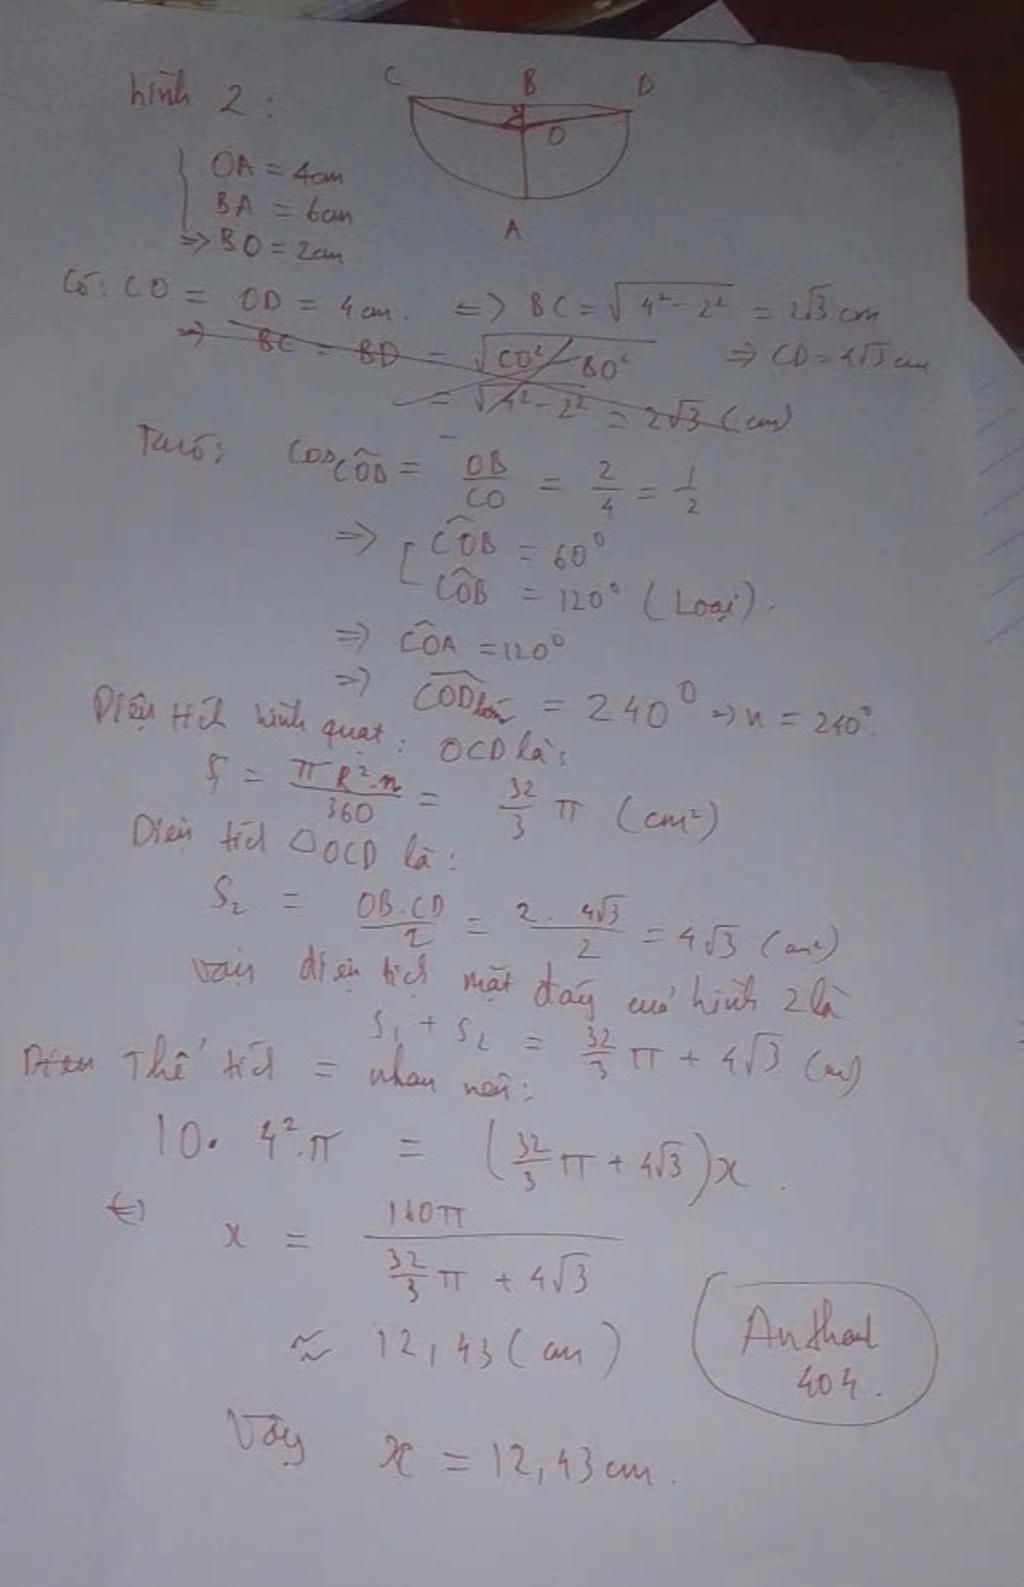 hình 2:
C B D
O
A
OA = 4cm
BA = 6cm
=> BO = 2cm
Có: CO = OD = 4cm. => BC = √(4² - 2²) = 2√3 cm
=> BC = BD = √(CO² - BO²) => CD = 4√3 cm
= √(4² - 2²) = 2√3 (cm)
cos COB = OB/CO = 2/4 = 1/2
=> [ COB = 60°
COB = 120° (Loại).
=> COA = 120°
=> COD lớn = 240° => n = 240°.
Diện tích hình quạt: OCD là:
S₁ = πR².n/360 = 32/3 π (cm²)
Diện tích △OCD là:
S₂ = OB.CD/2 = 2.4√3/2 = 4√3 (cm²)
Vậy diện tích mặt đáy của hình 2 là
S₁ + S₂ = 32/3 π + 4√3 (cm)
Thể tích = nhau nên:
10. 4².π = (32/3 π + 4√3)x.
<=> x = 160π / (32/3 π + 4√3)
≈ 12,43 (cm)
404.
Vậy x = 12,43 cm.